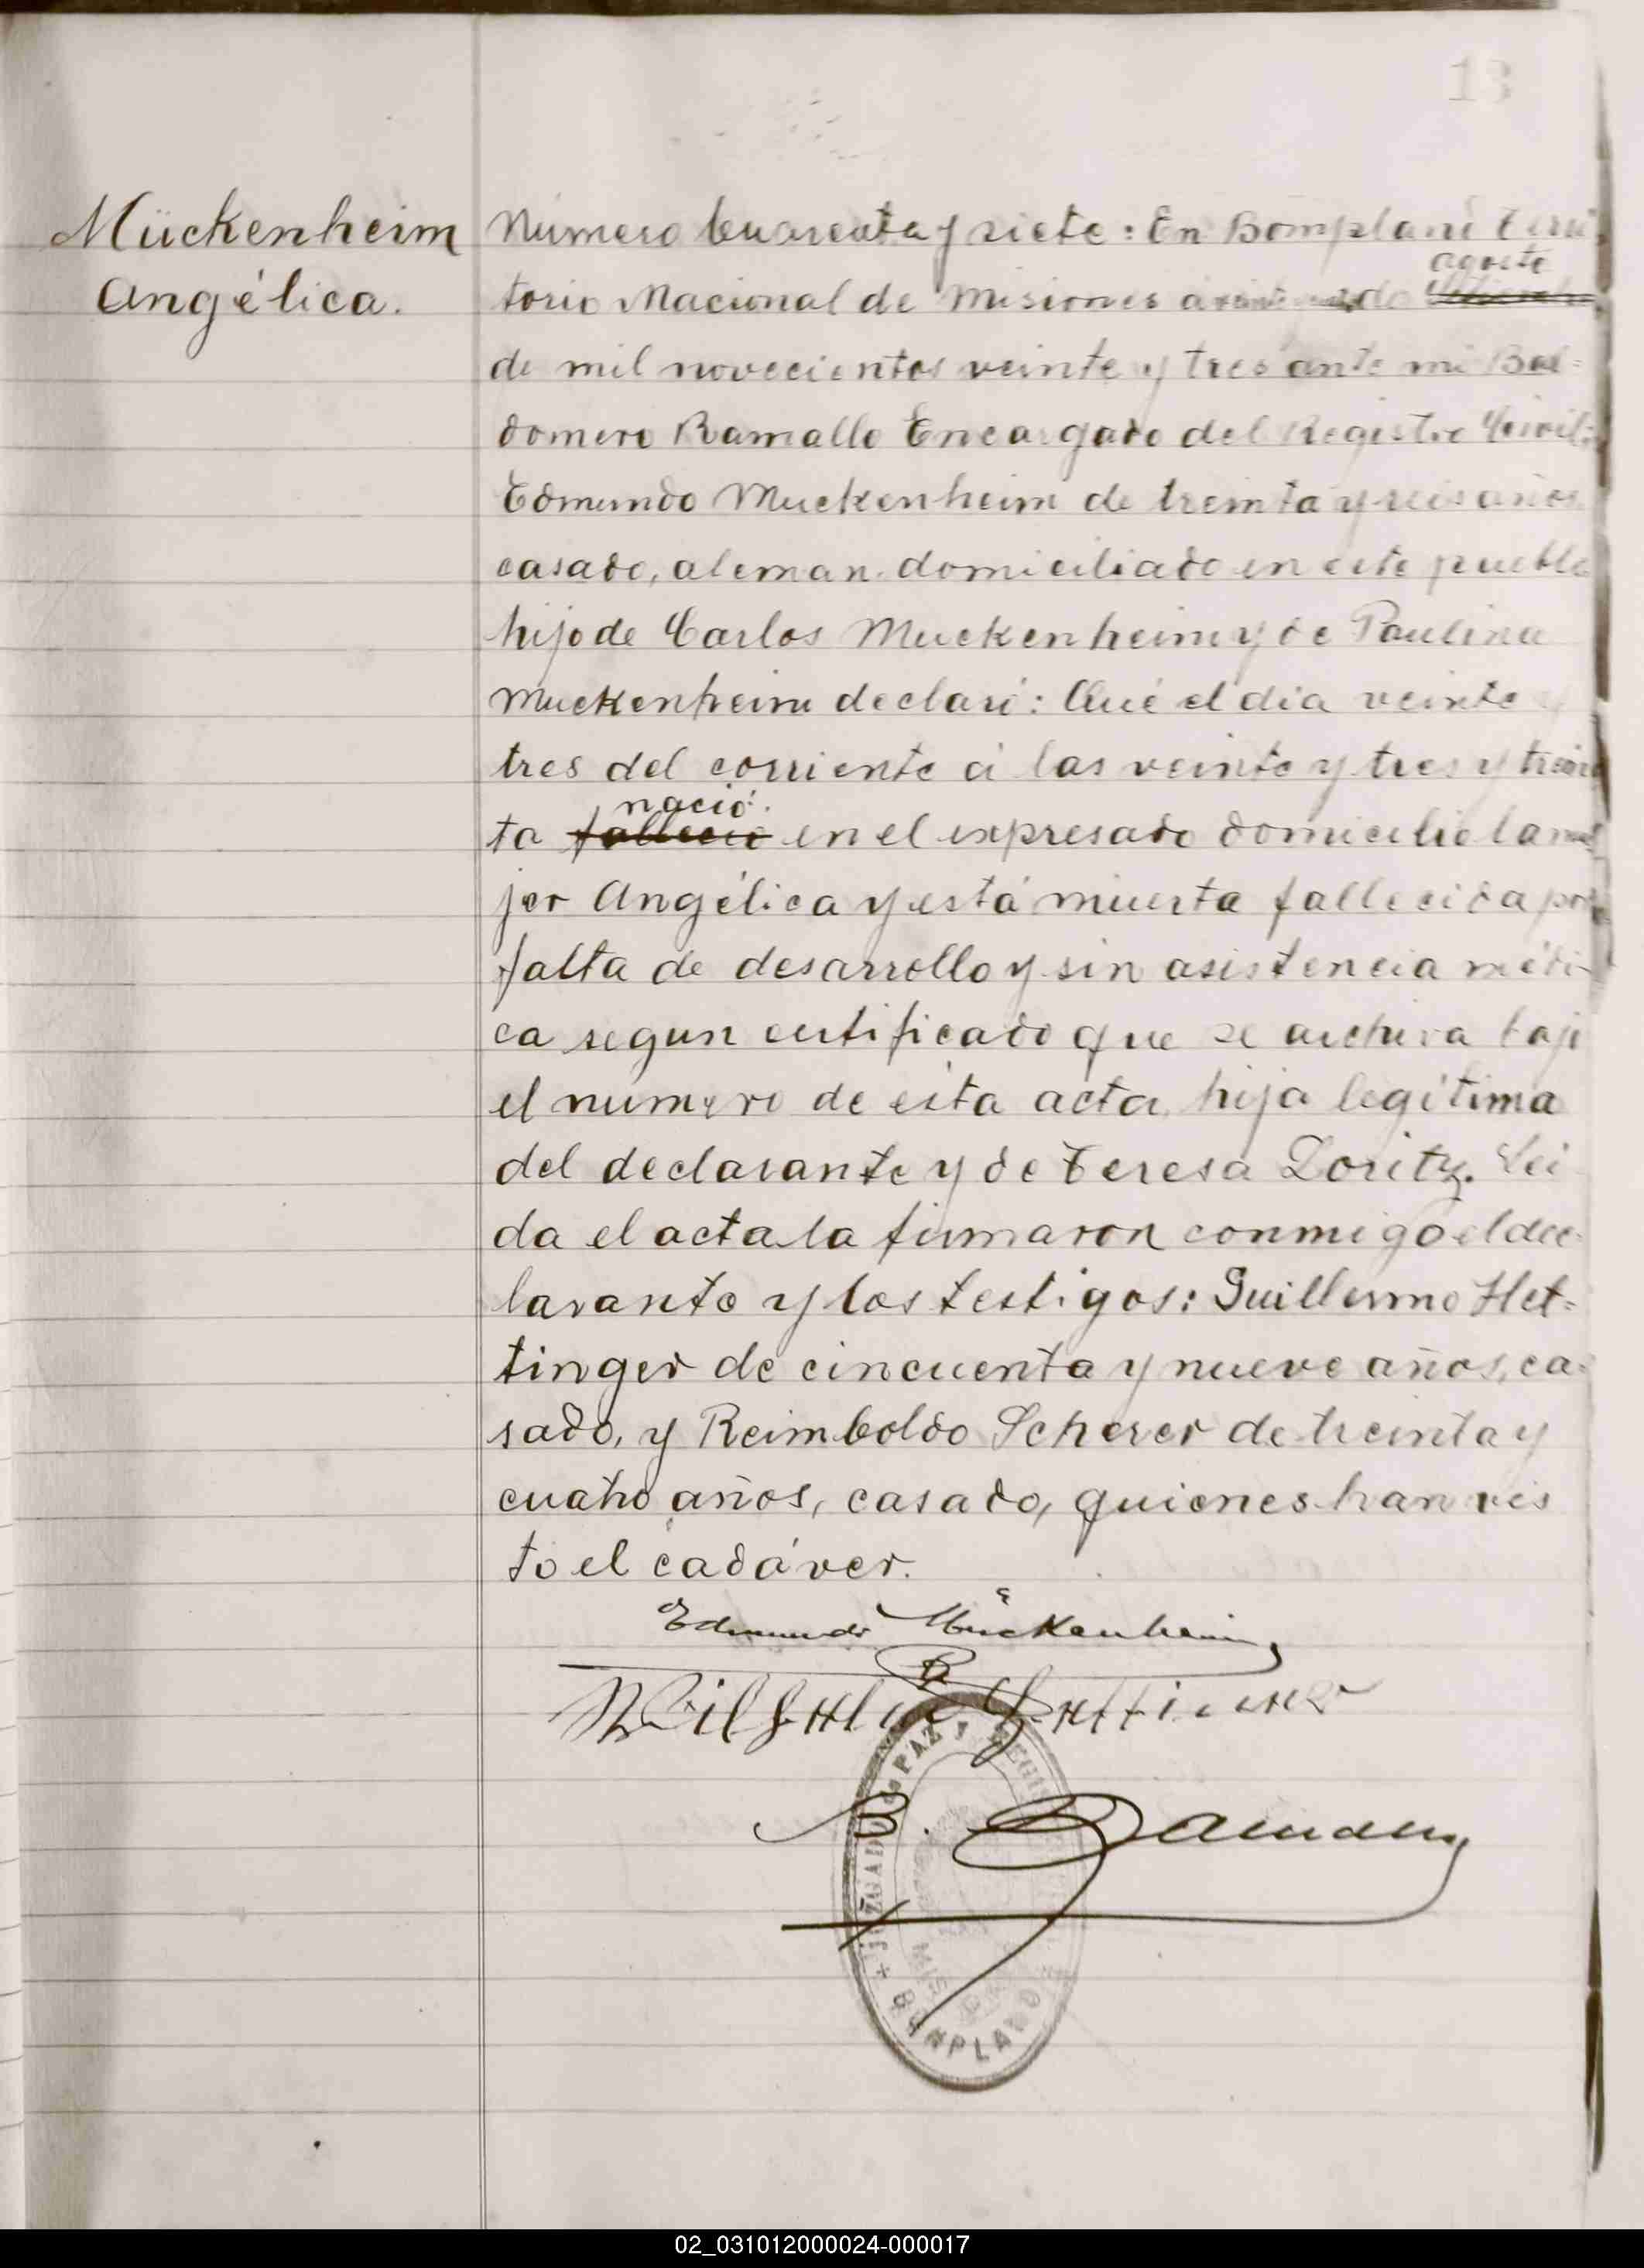 13
Mückenheim
Angélica.
Número Cuarenta y siete: En Bompland Terri
torio Nacional de Misiones á veinte de
agosto
de mil novecientos veinte y tres ante mi Bal=
domero Ramallo Encargado del Registro Civil:
Edmundo Muckenheim de treinta y seis años
casado, aleman domiciliado en este pueblo
hijo de Carlos Muckenheim y de Paulina
Muckenheim declaró: Que el dia veinte y
tres del corriente á las veinte y tres y trein
nació
ta falleció en el expresado domicilio la mu
jer Angélica y está muerta fallecida por
falta de desarrollo y sin asistencia médi-
ca segun certificado que se archiva bajo
el número de esta acta, hija legítima
del declarante y de Teresa Loritz. Lei
da el acta la firmaron conmigo el dec
larante y los testigos: Guillermo Het=
tinger de cincuenta y nueve años, ca=
sado, y Reimboldo Scherer de treinta y
cuatro años, casado, quienes han vis
to el cadáver.
Edmundo Mückenheim
Wilhelm Hettinger
B. Ramallo
JUZGADO DE PAZ Y REGIS
MIS
+ BONPLAND
02_031012000024-000017